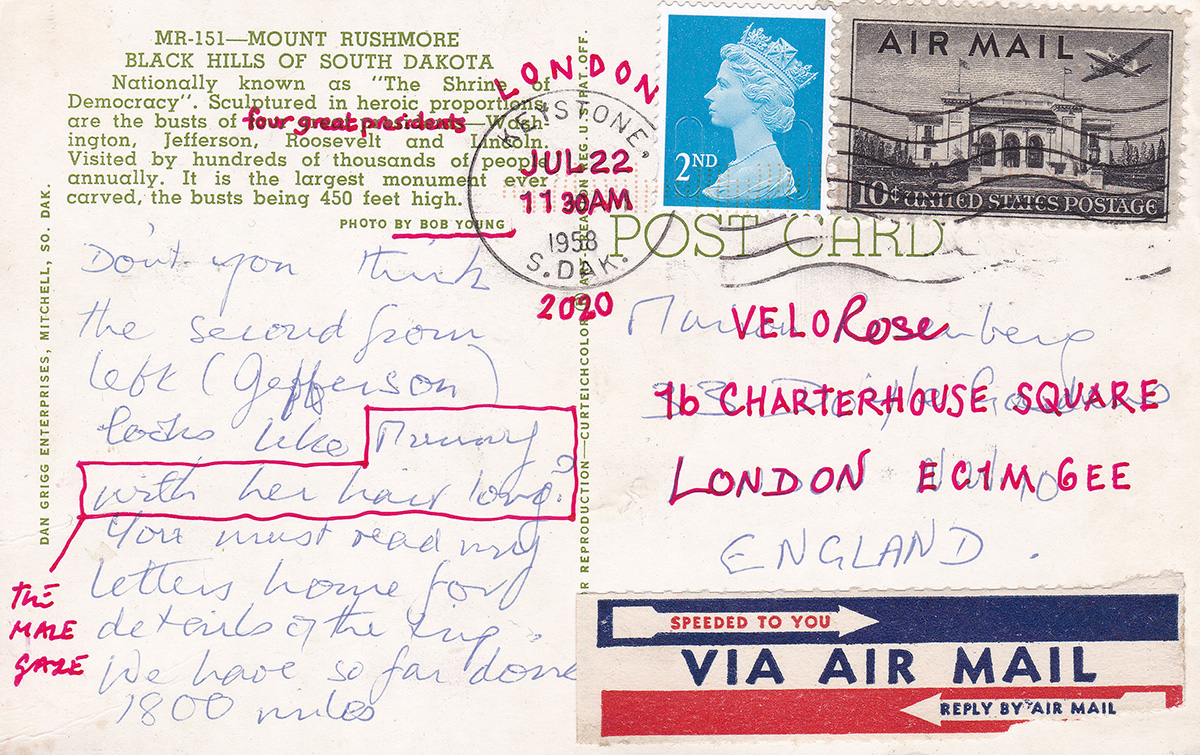 MR-151—MOUNT RUSHMORE
BLACK HILLS OF SOUTH DAKOTA
Nationally known as "The Shrine of
Democracy". Sculptured in heroic proportions
are the busts of four great presidents—Wash-
ington, Jefferson, Roosevelt and Lincoln.
Visited by hundreds of thousands of people
annually. It is the largest monument ever
carved, the busts being 450 feet high.
PHOTO BY BOB YOUNG
DAN GRIGG ENTERPRISES, MITCHELL, SO. DAK.
Don't you think
the second from
left (Jefferson)
looks like Mummy
with her hair long?
You must read my
letters home for
details of the trip.
We have so far done
1800 miles
THE
MALE
GAZE
LONDON
KEYSTONE,
JUL 22
11 30 AM
1958
S. DAK.
2020
REPRODUCTION—CURTEICHCOLOR
REG. U.S. PAT. OFF.
2ND
AIR MAIL
10¢ UNITED STATES POSTAGE
POST CARD
VELORose
Marion
76 CHARTERHOUSE SQUARE
LONDON EC1M 6EE
ENGLAND.
SPEEDED TO YOU
VIA AIR MAIL
REPLY BY AIR MAIL